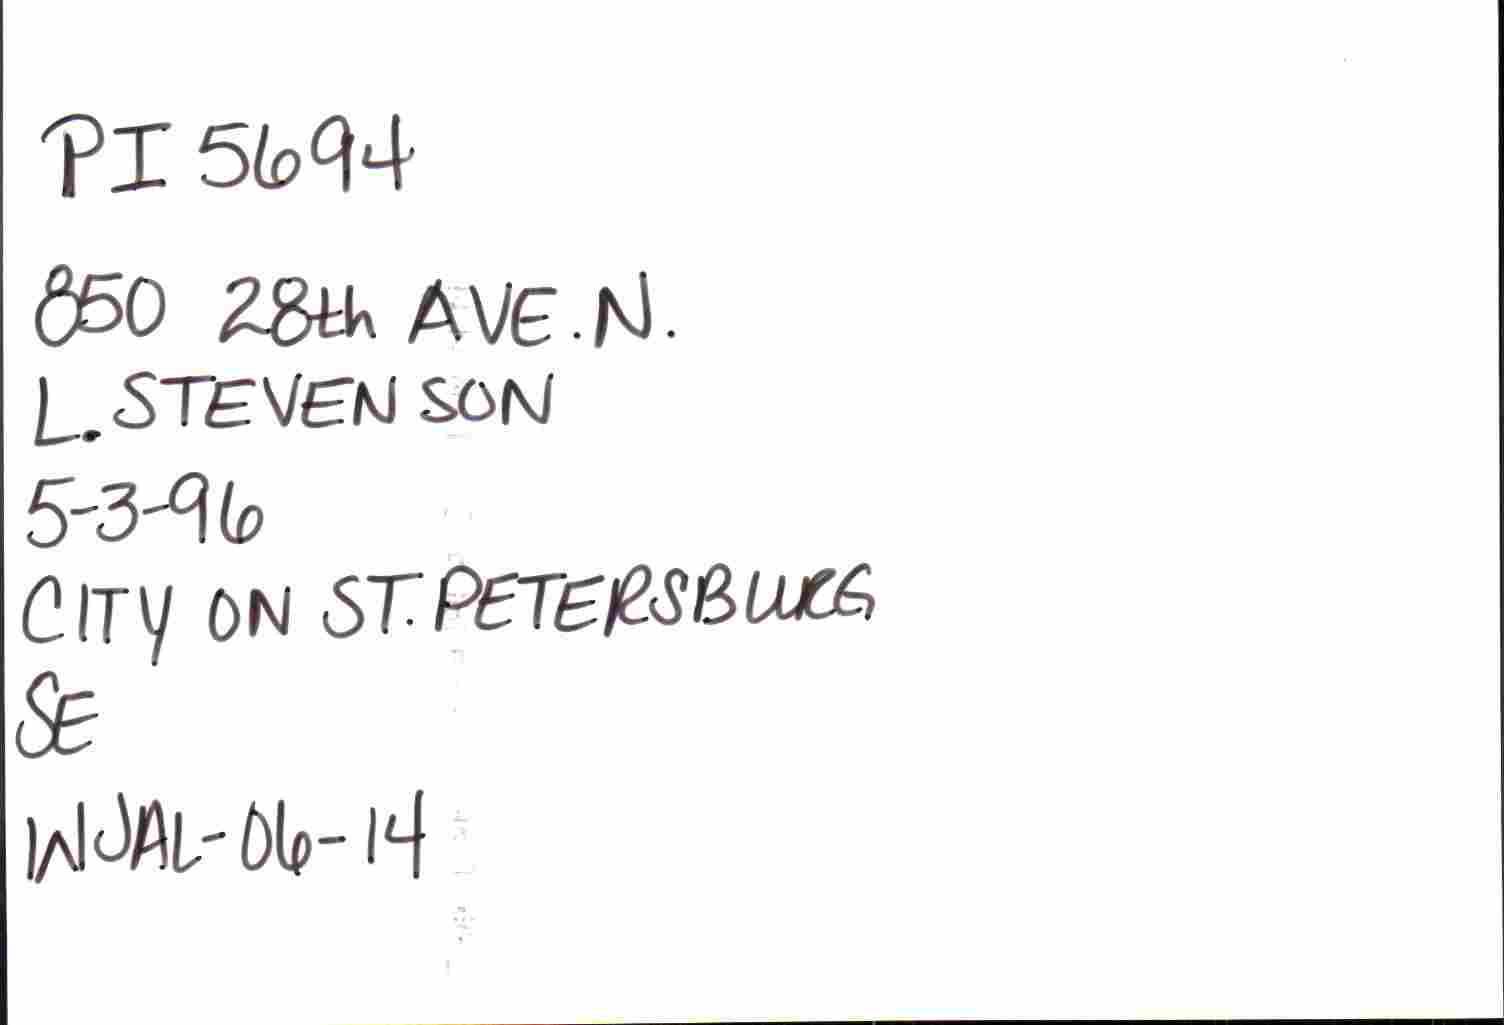 PI 5694
850 28th AVE. N.
L. STEVENSON
5-3-96
CITY ON ST. PETERSBURG
SE
WJAL-06-14